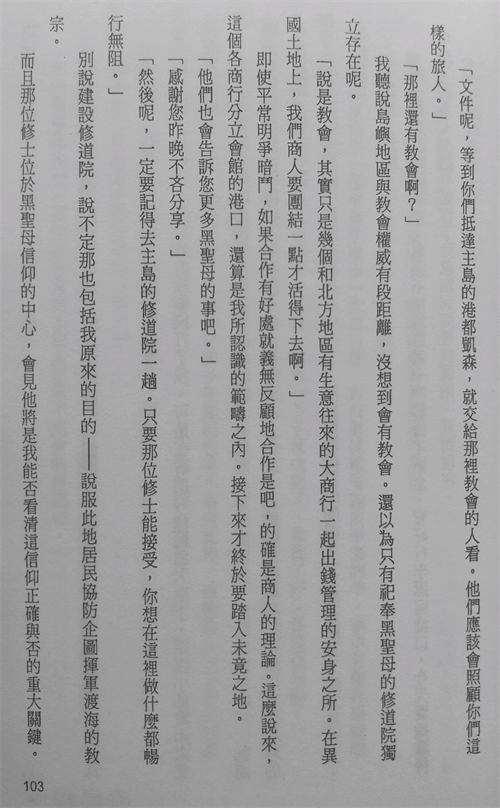 「文件呢，等到你們抵達主島的港都凱森，就交給那裡教會的人看。他們應該會照顧你們這
樣的旅人。」
「那裡還有教會啊？」
我聽說島嶼地區與教會權威有段距離，沒想到會有教會。還以為只有祀奉黑聖母的修道院獨
立存在呢。
「說是教會，其實只是幾個和北方地區有生意往來的大商行一起出錢管理的安身之所。在異
國土地上，我們商人要團結一點才活得下去啊。」
即使平常明爭暗鬥，如果合作有好處就義無反顧地合作是吧，的確是商人的理論。這麼說來，
這個各商行分立會館的港口，還算是我所認識的範疇之內。接下來才終於要踏入未竟之地。
「他們也會告訴您更多黑聖母的事吧。」
「感謝您昨晚不吝分享。」
「然後呢，一定要記得去主島的修道院一趟。只要那位修士能接受，你想在這裡做什麼都暢
行無阻。」
別說建設修道院，說不定那也包括我原來的目的——說服此地居民協防企圖揮軍渡海的教
宗。
而且那位修士位於黑聖母信仰的中心，會見他將是我能否看清這信仰正確與否的重大關鍵。
103